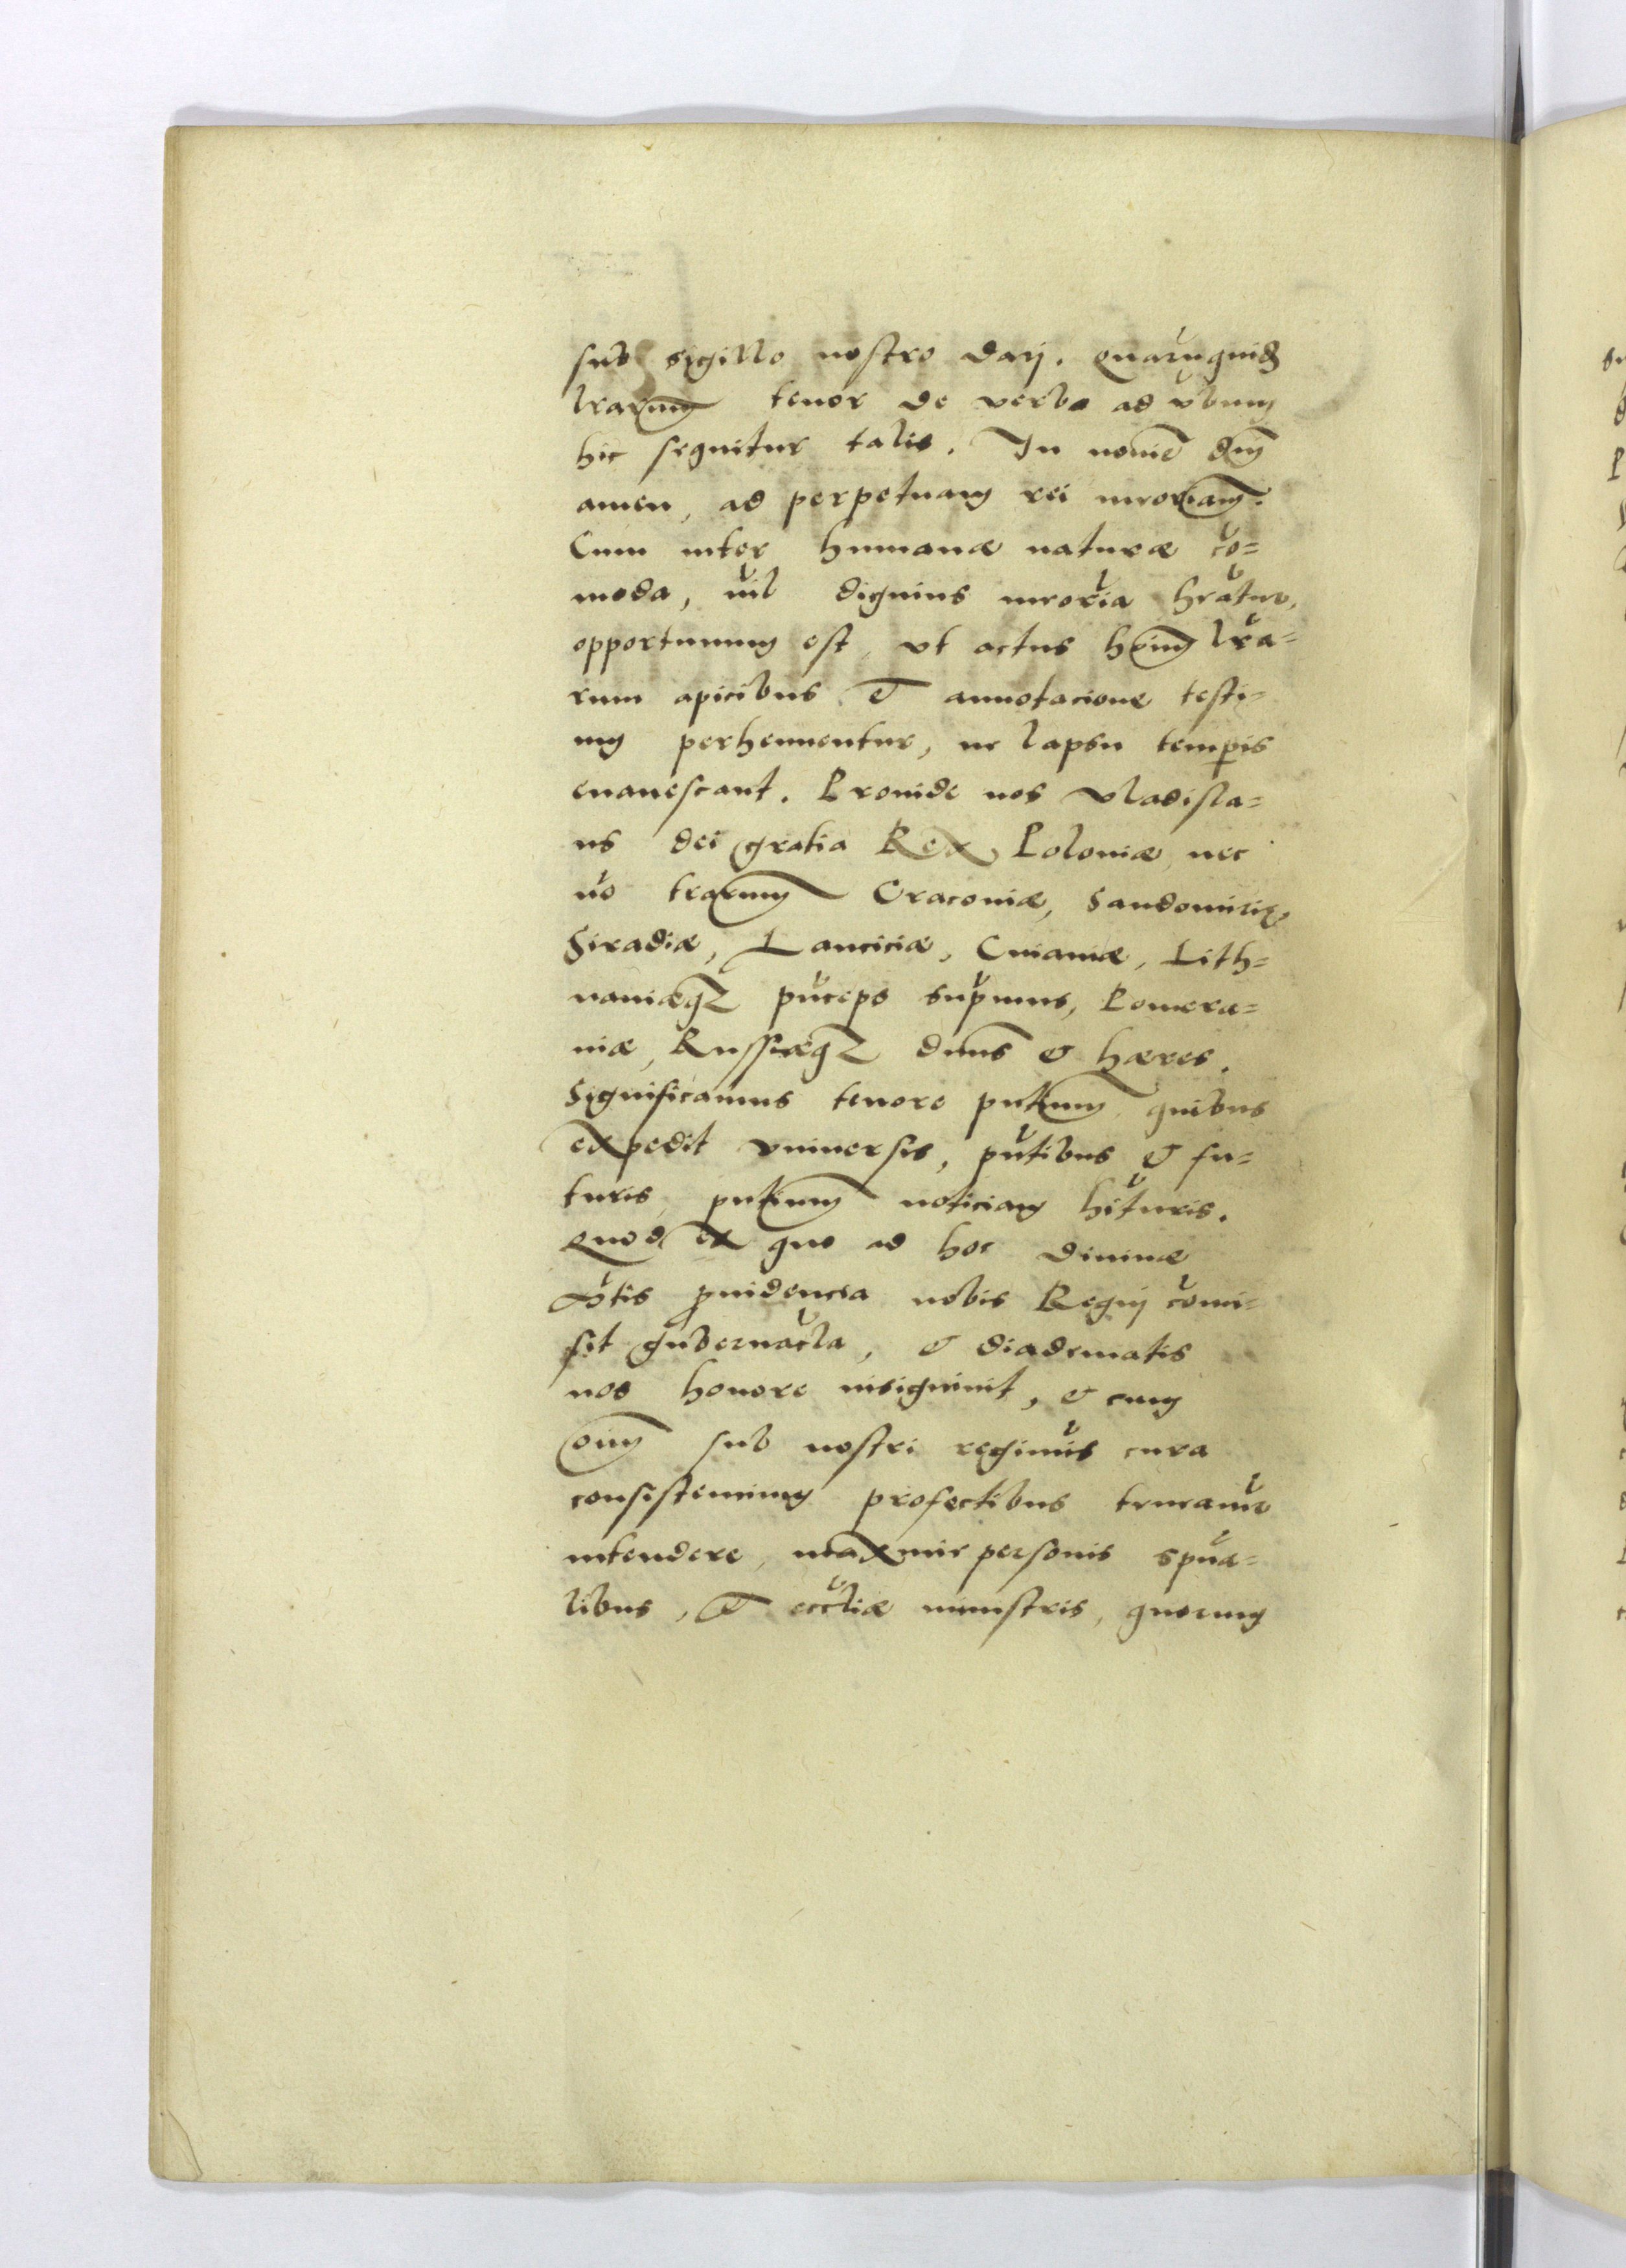 sub sigillo nostro darj. quarūquid
lrarum tenor de verbo ad vbum
hic sequitur talis. In noniē dni
amen, ad perpetuam rei mroriam.
Cum inter humanæ naturæ cō=
moda, nīl dignius mrōria hrātur,
opportunum est, vt actus hoim lrā=
rum apicibus et annotacione testi=
um perhennentur, ne lapsu temporis
euanescant. Prouide nos Vladisla=
us dei gratia Rex Poloniæ, nec
nō trarum Cracouiæ, Sandomiriæ,
Siradiæ, Lanciciæ, Cuiauiæ, Lith=
uaniæq3 pūceps supmus, Pomera=
niæ, Russiæq3 dnns & hæres.
Significamus tenore pntium, quibus
expedit vniuersis, pntibus & fu=
turis, pntium noticiam hituris.
Quod ex quo ad hoc diuinæ
bōtis prouidencia nobis Regnj cōmi=
sit gubernacla, & diadematis
nos honore insigniuit, & cum
oim sub nostri regimīs cura
consistencium profectibus teneamur
intendere, maxime personis spūa=
libus, et eccliæ ministris, quorum